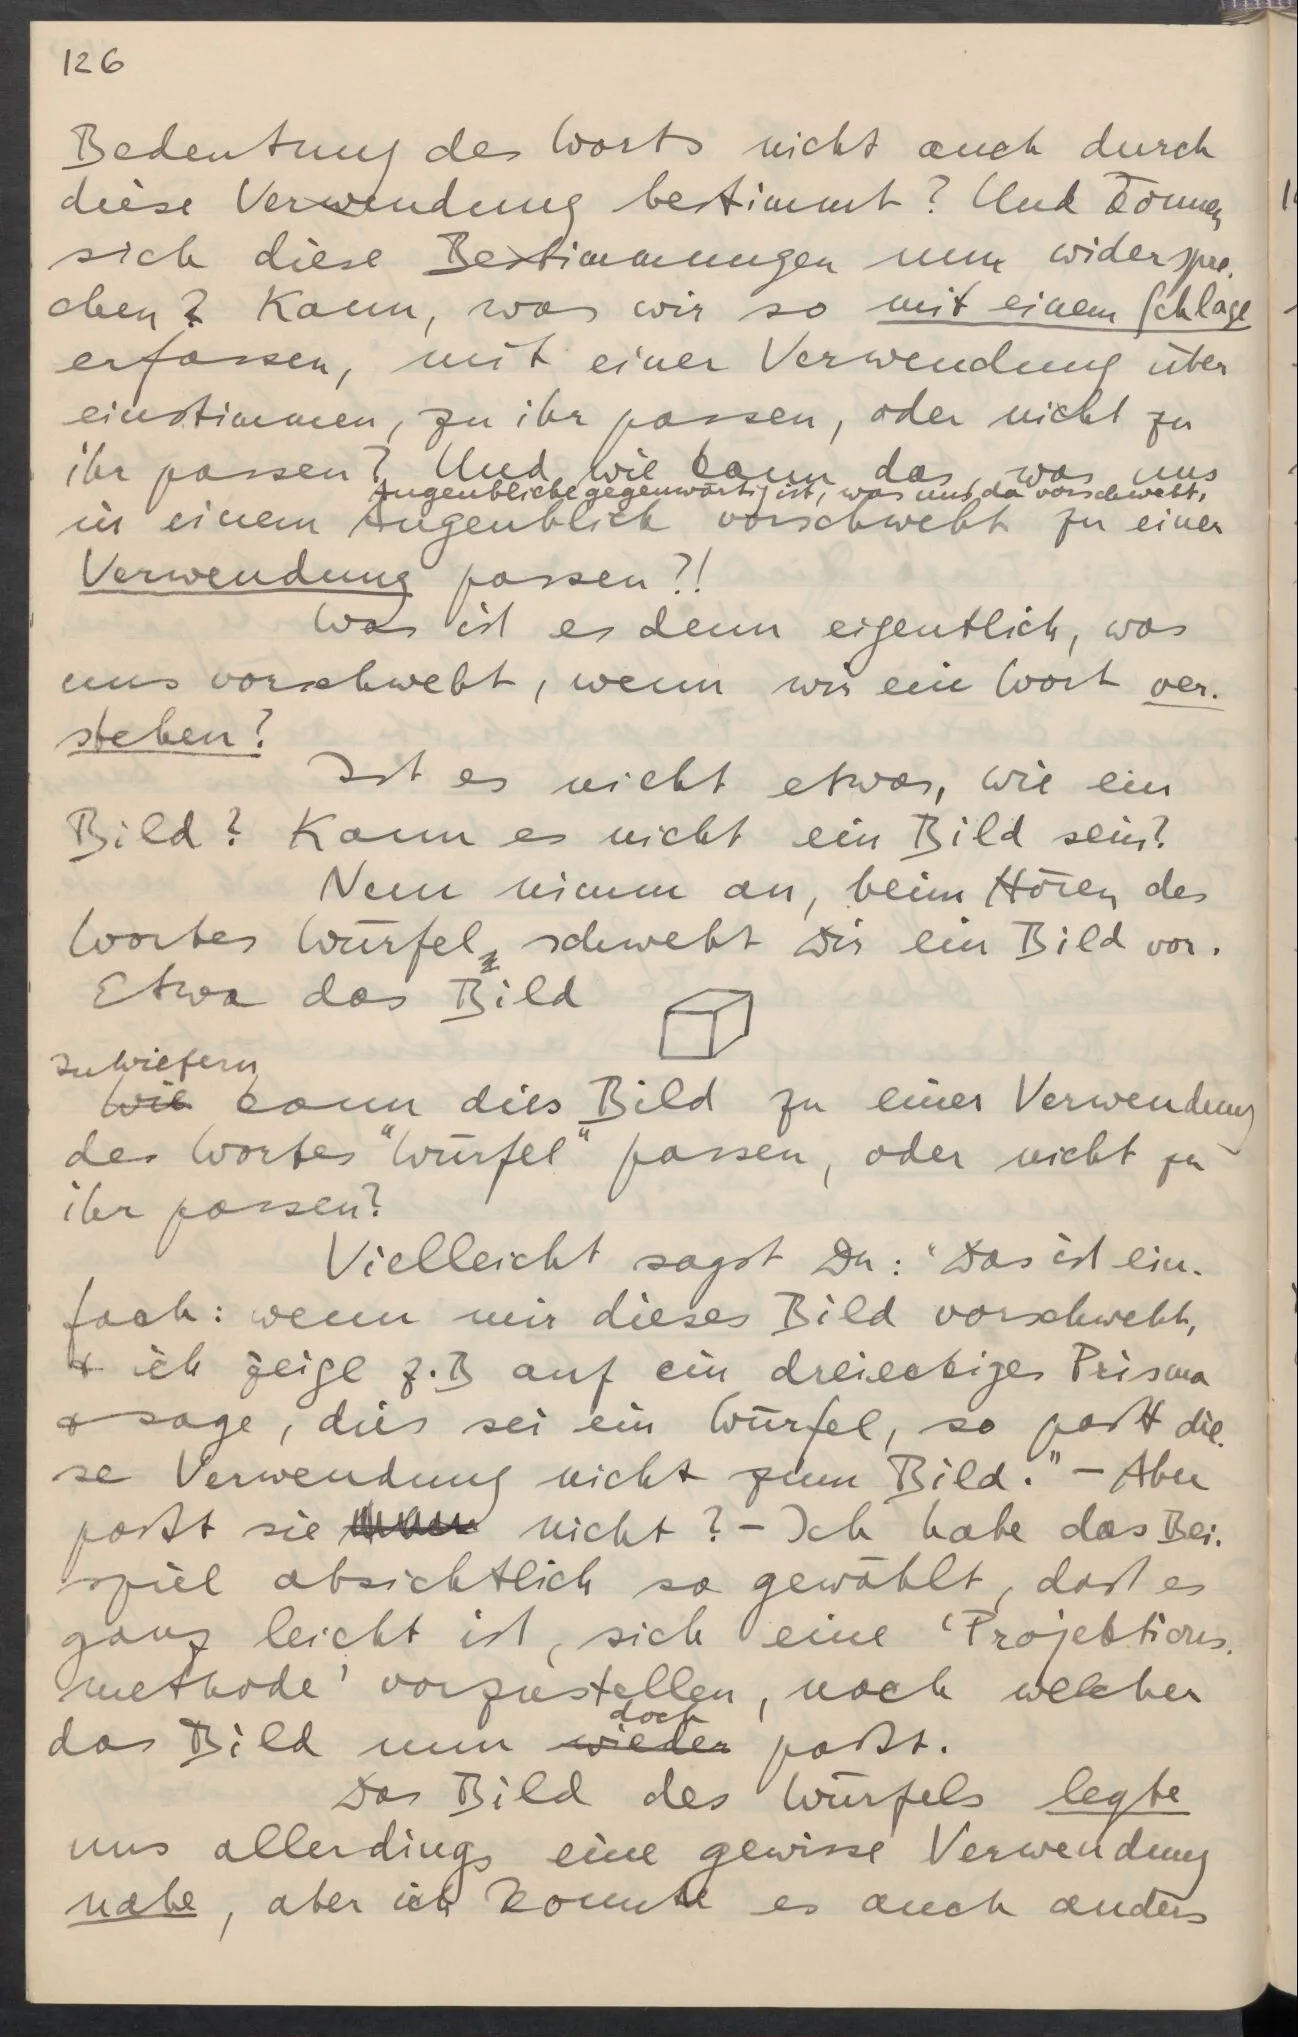 126
Bedeutung des Worts nicht auch durch
diese Verwendung bestimmt? Und können
sich diese Bestimmungen nun widerspre-
chen? Kann, was wir so mit einem Schlage
erfassen, mit einer Verwendung über
einstimmen, zu ihr passen, oder nicht zu
ihr passen? Und wie kann das was uns
Augenblicke gegenwärtig ist, was uns da vorschwebt,
in einem Augenblick vorschwebt zu einer
Verwendung passen?!
Was ist es denn eigentlich, was
uns vorschwebt, wenn wir ein Wort ver-
stehen?
Ist es nicht etwas, wie ein
Bild? Kann es nicht ein Bild sein?
Nun nimm an, beim Hören des
Wortes Würfel, schwebt Dir ein Bild vor.
Etwa das Bild
Inwiefern
Wie kann dies Bild zu einer Verwendung
des Wortes "Würfel" passen, oder nicht zu
ihr passen?
Vielleicht sagst Du: "Das ist ein-
fach: wenn mir dieses Bild vorschwebt,
& ich zeige z.B auf ein dreieckiges Prisma
& sage, dies sei ein Würfel, so paßt die-
se Verwendung nicht zum Bild." – Aber
paßt sie nicht? – Ich habe das Bei-
spiel absichtlich so gewählt, daß es
ganz leicht ist, sich eine 'Projektions-
methode' vorzustellen, nach welcher
doch
das Bild nun wieder paßt.
Das Bild des Würfels legte
uns allerdings eine gewisse Verwendung
nahe, aber ich konnte es auch anders